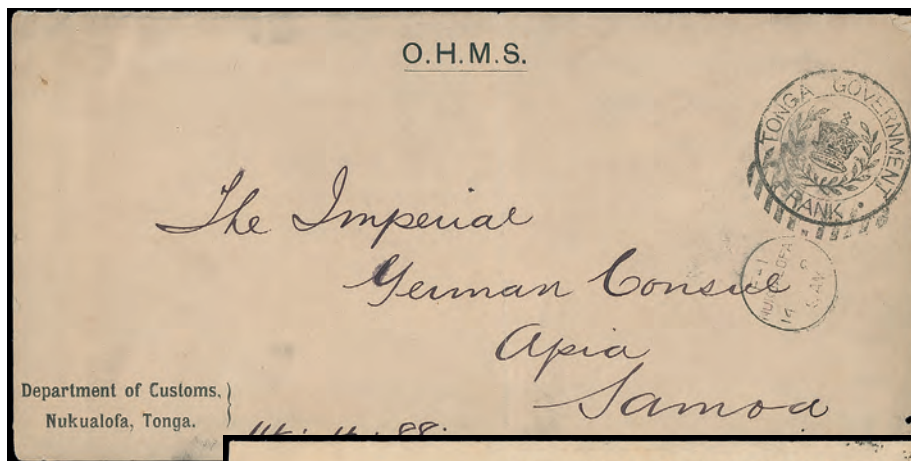 O.H.M.S.
TONGA GOVERNMENT
FRANK
The Imperial
German Consul
Apia
Samoa
Department of Customs,
Nukualofa, Tonga.